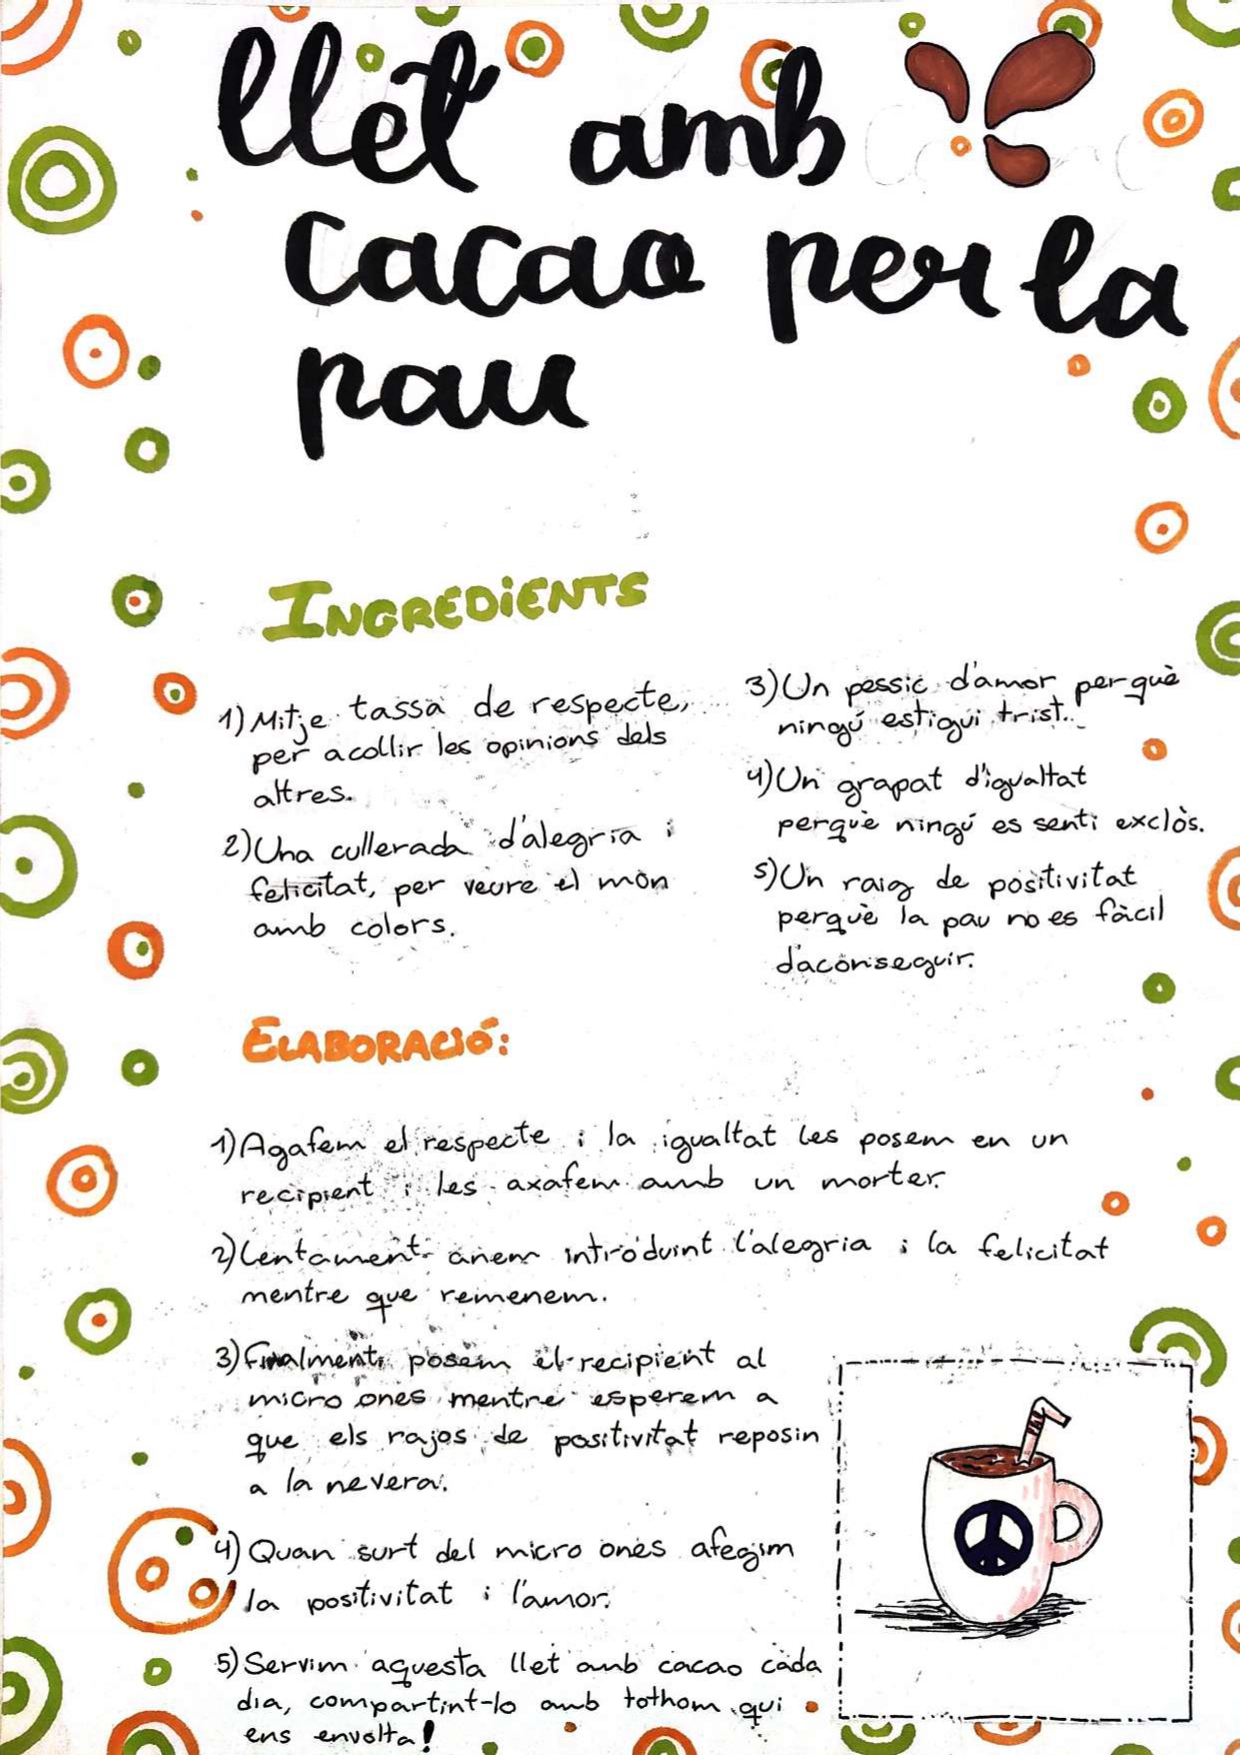 llet amb
cacao per la
pau
INGREDIENTS
1) Mitje tassa de respecte,
per acollir les opinions dels
altres.
2) Una cullerada d'alegria i
felicitat, per veure el món
amb colors.
3) Un pessic d'amor perquè
ningú estigui trist.
4) Un grapat d'igualtat
perquè ningú es senti exclòs.
5) Un raig de positivitat
perquè la pau no es fàcil
d'aconseguir.
ELABORACIÓ:
1) Agafem el respecte i la igualtat les posem en un
recipient i les axafem amb un morter.
2) Lentament anem introduint l'alegria i la felicitat
mentre que remenem.
3) Finalment, posem el recipient al
micro ones mentre esperem a
que els rajos de positivitat reposin
a la nevera.
4) Quan surt del micro ones afegim
la positivitat i l'amor.
5) Servim aquesta llet amb cacao cada
dia, compartint-lo amb tothom qui
ens envolta!
PAU